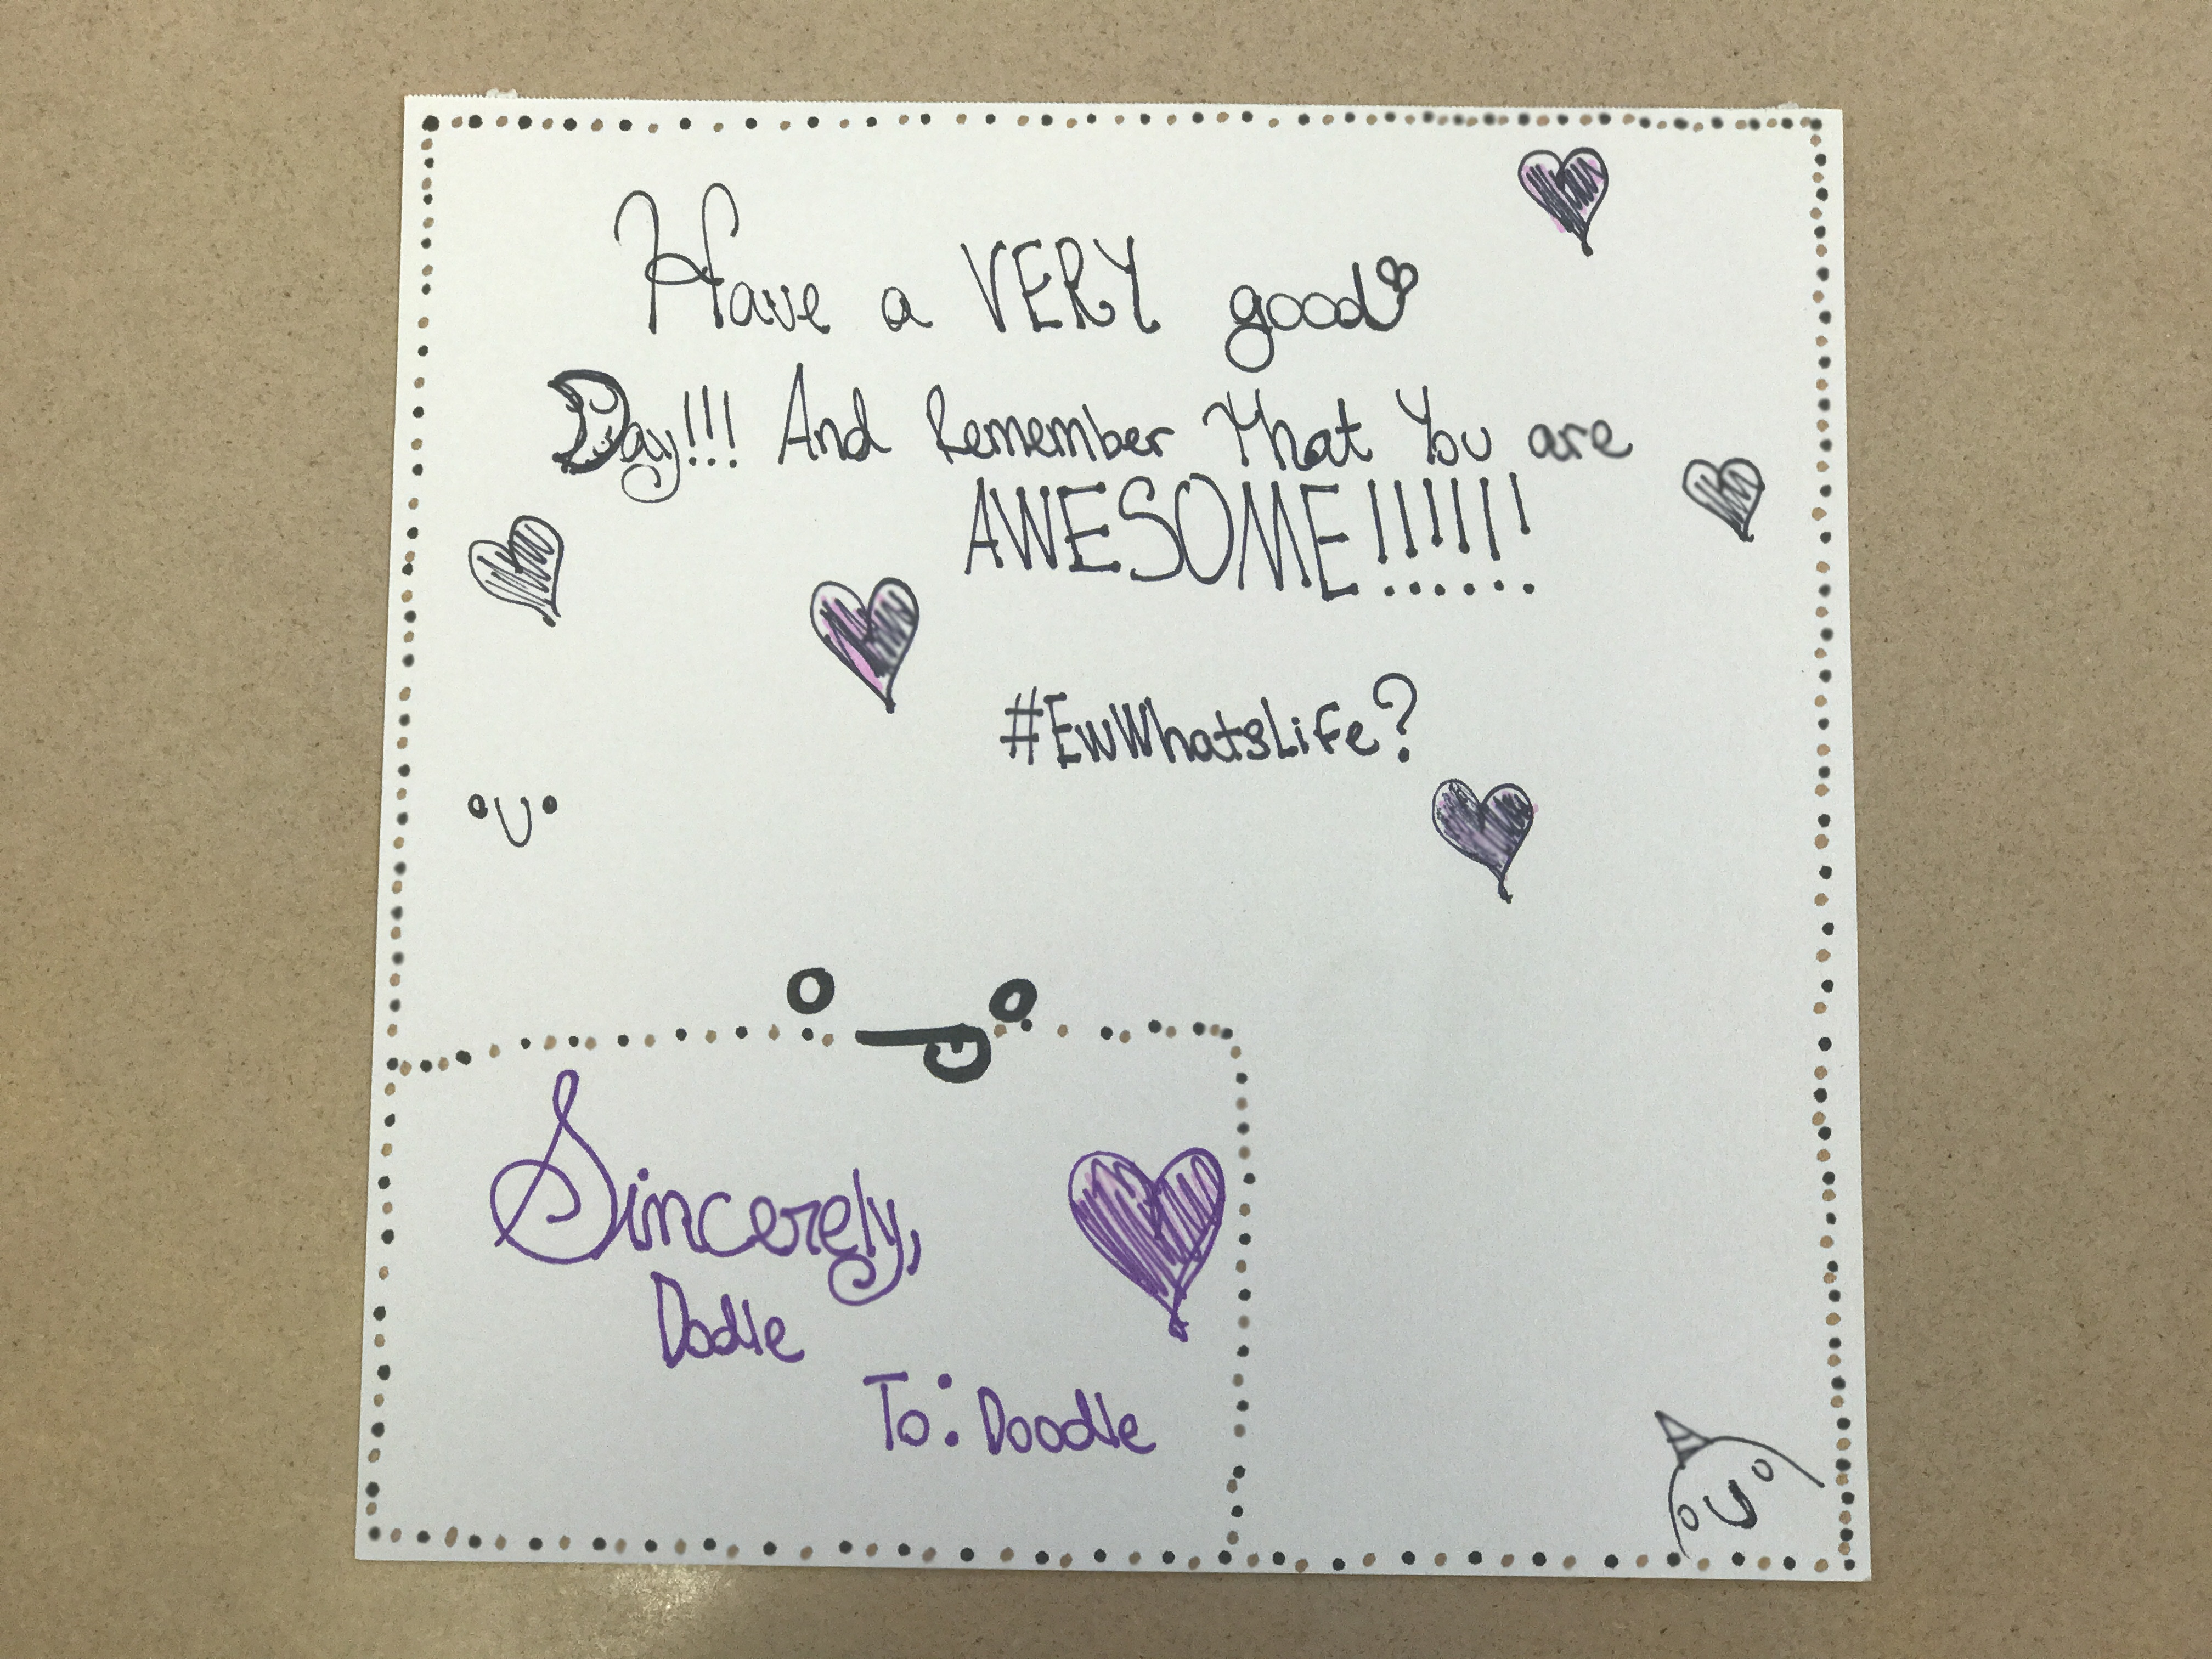 Have a VERY good
Day!!! And Remember That You are
AWESOME!!!!!!
#EwWhatsLife?
Sincerely,
Dodle
To: Doodle